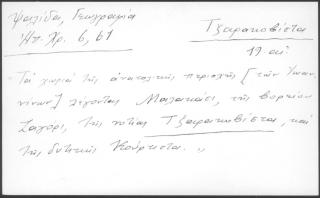 Ψαλίδα, Γεωγραφία
Ηπ. Χρ. 6, 61
Τζαρακοβίστα
19. αι
"Τα χωριά της ανατολικής περιοχής [των Ιωαν-
νίνων] λέγονται Μαλακάσι, της βορείου
Ζαγόρι, της νοτίας Τζαρακοβίστα, και
της δυτικής Κούρεντα."